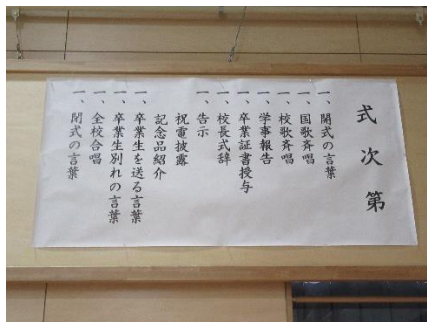 式次第
一、開式の言葉
一、国歌斉唱
一、校歌斉唱
一、学事報告
一、卒業証書授与
一、校長式辞
一、告示
祝電披露
記念品紹介
一、卒業生を送る言葉
一、卒業生別れの言葉
一、全校合唱
一、閉式の言葉